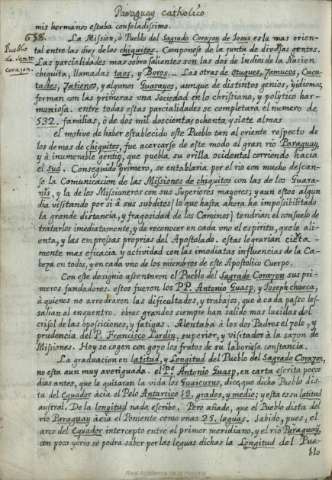 Paraguay catholico
mis hermanos estaba consoladissimo.
638. La Mision, ò Pueblo del Sagrado Corazon de Jesus esta mas orien-
Pueblo
Corazon.
tal entre las diez de los chiquitos. Componese de la junta de diversas gentes.
Las parcialidades mas sobresalientes son las dos de Indios de la Nacion
chiquita, llamadas taos, y Boros... Las otras de otuques,
tades, y algunos Guarayos, aunque de distintos genios, y idiomas,
forman con las primeras una Sociedad en lo christiano, y politico bas-
entre todas estas parcialidades se completaba el numero de
532. familias, ò de dos mil doscientas ochenta y siete almas
El motivo de haber establecido este Pueblo tan al oriente respecto de
los demas de chiquitos, fue acercarse de este modo al gran rio Paraguay,
y à inumerable gentio, que puebla su orilla occidental corriendo hacia
el Sud. Conseguido primero, se entablaria por el rio con mucho descan-
so la Comunicacion de las Missiones de chiquitos con las de los Guara-
nis, y la de los Missioneros con sus Superiores mayores; y aun estos algun
dia visitando por sì à sus subditos (lo que hasta ahora ha imposibilitado
la grande distancia, y fragosidad de los Caminos) tendrian el consuelo de
tratarlos inmediatamente, y de reconocer en cada uno el espiritu, que le ali-
enta, y las empresas proprias del Apostolado. estas lograrian cierta-
mente mas eficacia, y actividad con las inmediatas influencias de la Ca-
beza en todos, y en cada uno de los miembros de este Apostolico Cuerpo.
Con este designio assentaron el Pueblo del Sagrado Corazon sus pri-
meros fundadores. estos fueron los PP. Antonio Guasp, y Joseph chueca,
à quienes no arredraron las dificultades, y trabajos, que à cada passo les
salian al encuentro. obras grandes siempre han salido mas lucidas del
crisol de las oposiciones, y fatigas. Alentaba à los dos Padres el zelo, y
prudencia del P. Francisco Lardin, superior, y visitador à la sazon de
Missiones. Hoy se cogen con gozo los frutos de su laboriosa constancia.
La graduacion en latitud, y Longitud del Pueblo del Sagrado Corazon,
no esta aun muy averiguada. el P. Antonio Guasp, en carta escrita pocos
dias antes, que le quitaran la vida los Guaicurus, dice, que dicho Pueblo dis-
ta del Equador àcia el Polo Antarctico 17. grados, y medio; y esta es su latitud
austral. De la longitud nada escribe. Pero añade, que el Pueblo dista del
rio Paraguay àcia el Poniente como unas 25. leguas. Sabido, pues, el
arco del Equador intercepto entre el primer meridiano, y el rio Paraguay,
con poco yerro se podra saber por las leguas dichas la Longitud del Pue-
blo
Real Academia de la Historia